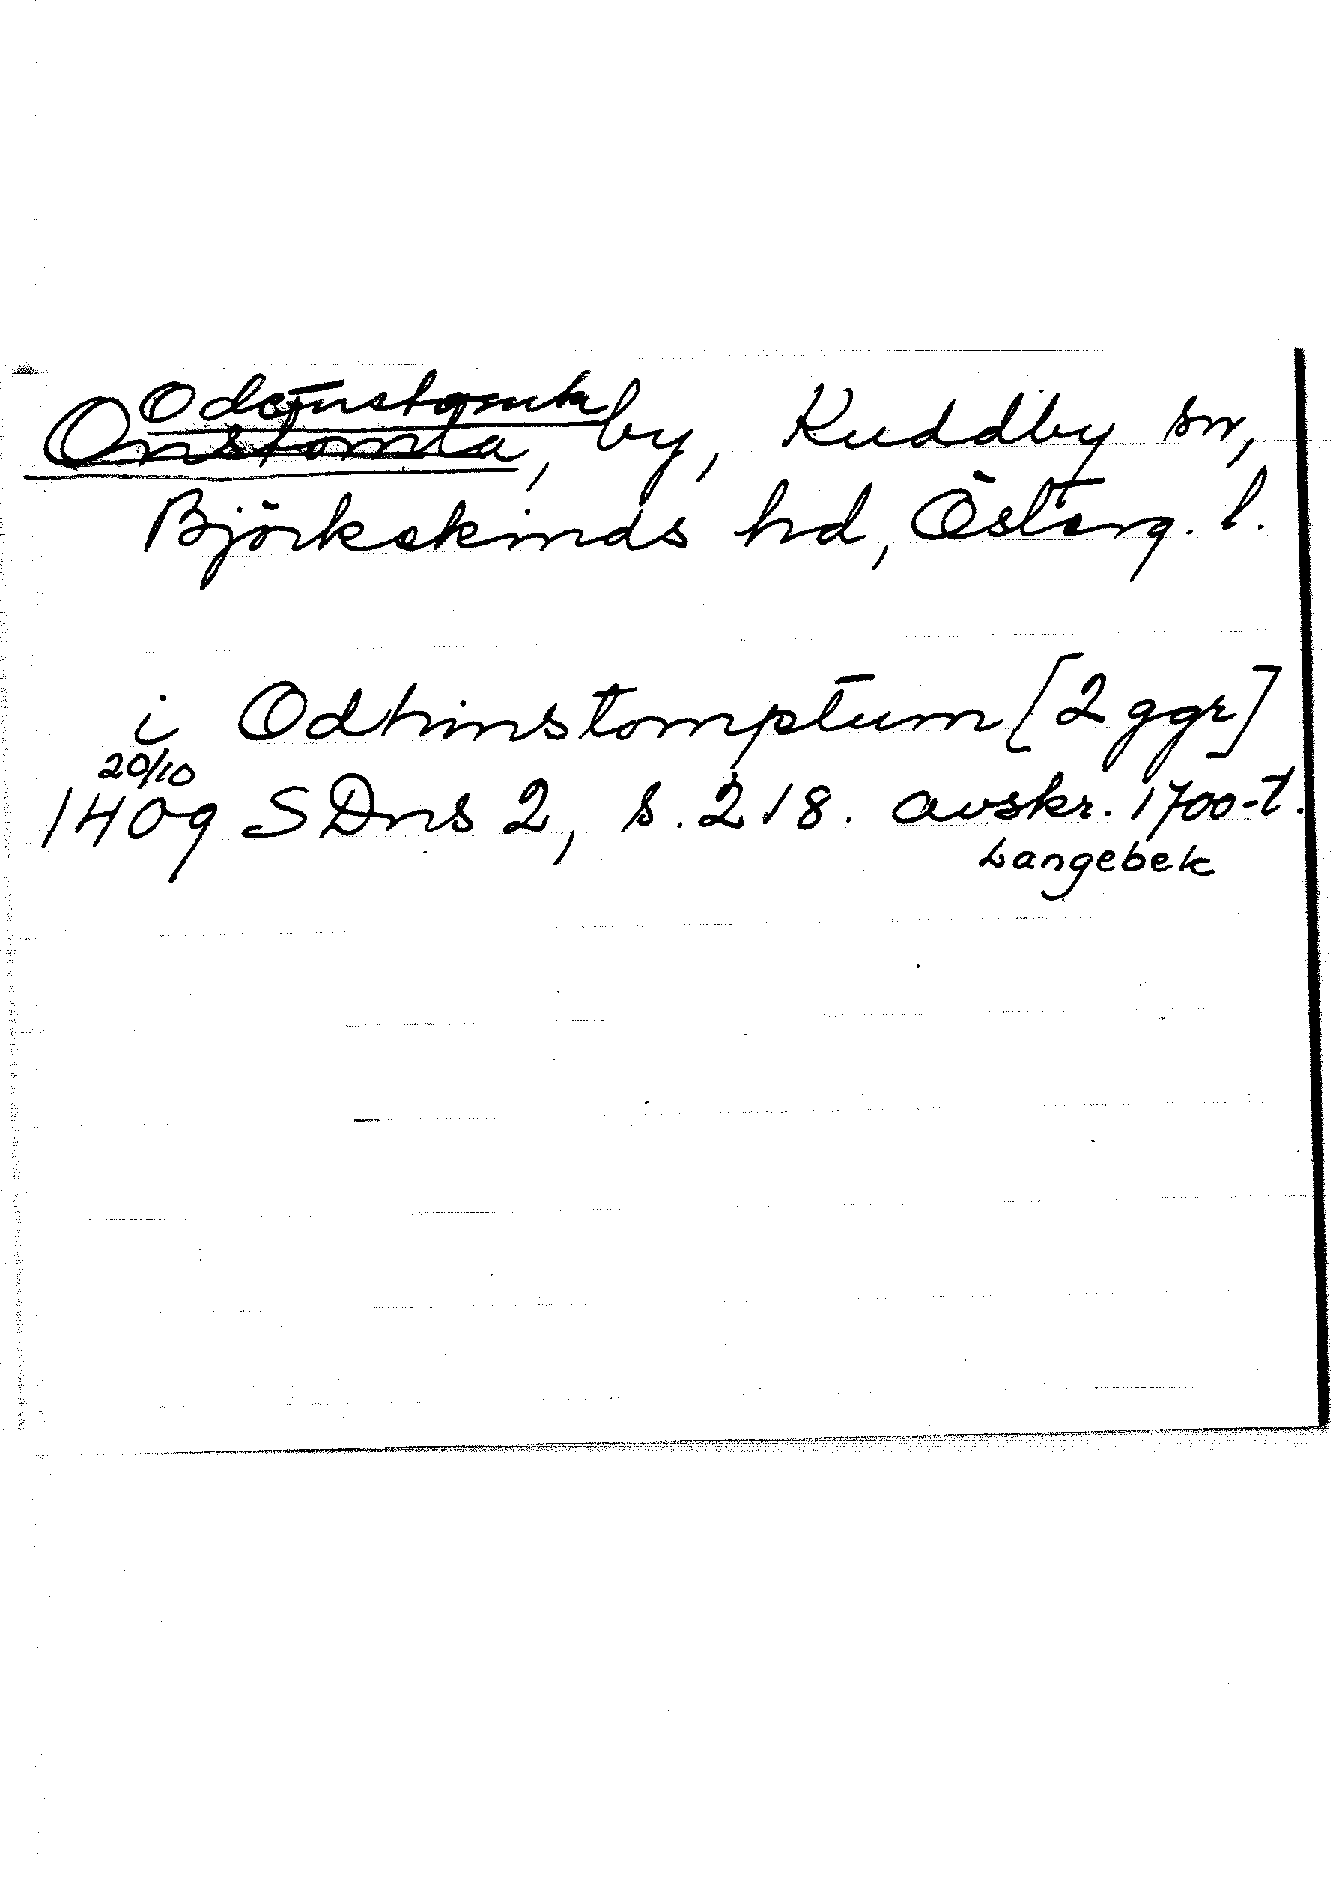 Odenstomta
Onstomta, by, Kuddby sn,
Björkekinds hd, Österg. l.
i Odhinstomptum [2 ggr]
20/10
1409 SDns 2, s. 218. avskr. 1700-t.
Langebek